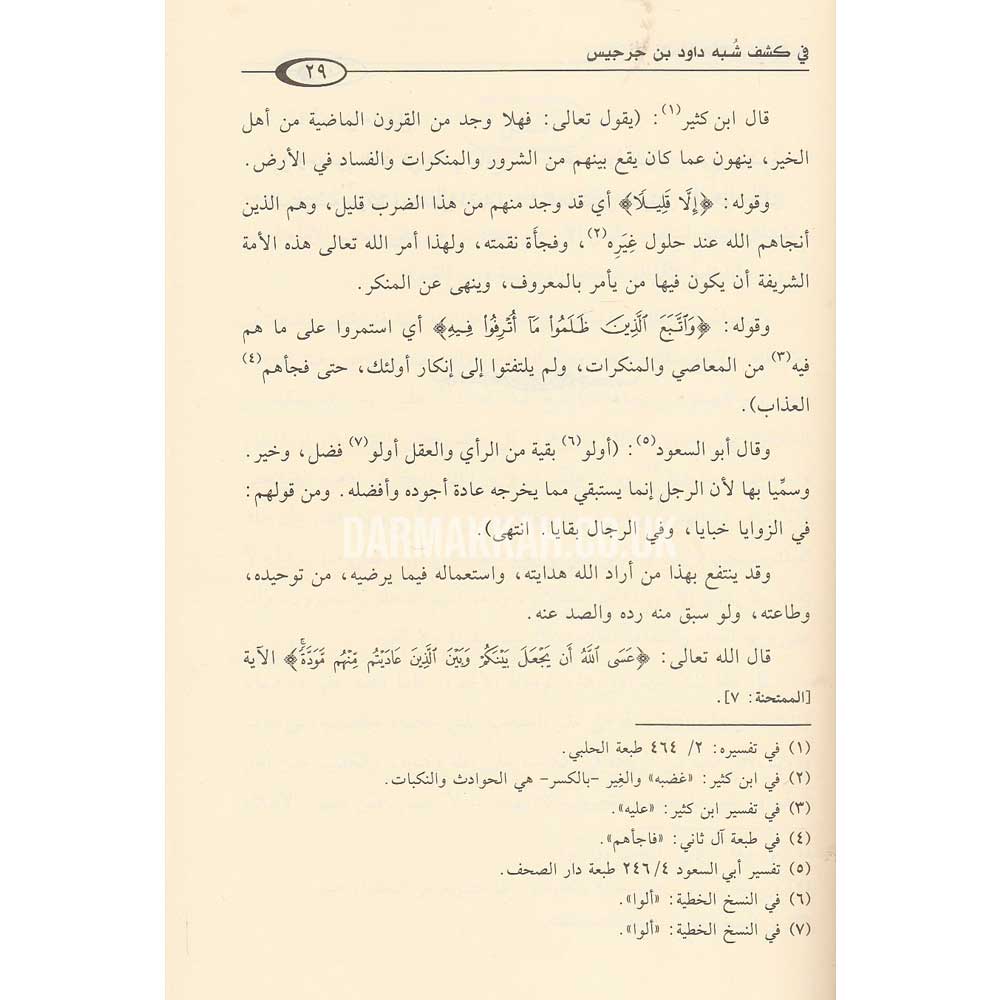 في كشف شُبه داود بن جرجيس
٢٩
قال ابن كثير(١): (يقول تعالى: فهلا وجد من القرون الماضية من أهل
الخير، ينهون عما كان يقع بينهم من الشرور والمنكرات والفساد في الأرض.
وقوله: ﴿إِلَّا قَلِيلًا﴾ أي قد وجد منهم من هذا الضرب قليل، وهم الذين
أنجاهم الله عند حلول غِيَرِه(٢)، وفجأَة نقمته، ولهذا أمر الله تعالى هذه الأمة
الشريفة أن يكون فيها من يأمر بالمعروف، وينهى عن المنكر.
وقوله: ﴿وَٱتَّبَعَ ٱلَّذِينَ ظَلَمُوا۟ مَآ أُتْرِفُوا۟ فِيهِ﴾ أي استمروا على ما هم
فيه(٣) من المعاصي والمنكرات، ولم يلتفتوا إلى إنكار أولئك، حتى فجأهم(٤)
العذاب).
وقال أبو السعود(٥): (أولو(٦) بقية من الرأي والعقل أولو(٧) فضل، وخير.
وسمِّيا بها لأن الرجل إنما يستبقي مما يخرجه عادة أجوده وأفضله. ومن قولهم:
في الزوايا خبايا، وفي الرجال بقايا. انتهى).
DARMAKKAH.CO.UK
وقد ينتفع بهذا من أراد الله هدايته، واستعماله فيما يرضيه، من توحيده،
وطاعته، ولو سبق منه رده والصد عنه.
قال الله تعالى: ﴿عَسَى ٱللَّهُ أَن يَجْعَلَ بَيْنَكُمْ وَبَيْنَ ٱلَّذِينَ عَادَيْتُم مِّنْهُم مَّوَدَّةً ۚ﴾ الآية
[الممتحنة: ٧].
(١) في تفسيره: ٢/ ٤٦٤ طبعة الحلبي.
(٢) في ابن كثير: «غضبه» والغِير -بالكسر- هي الحوادث والنكبات.
(٣) في تفسير ابن كثير: «عليه».
(٤) في طبعة آل ثاني: «فاجأهم».
(٥) تفسير أبي السعود ٢٤٦/٤ طبعة دار الصحف.
(٦) في النسخ الخطية: «ألوا».
(٧) في النسخ الخطية: «ألوا».